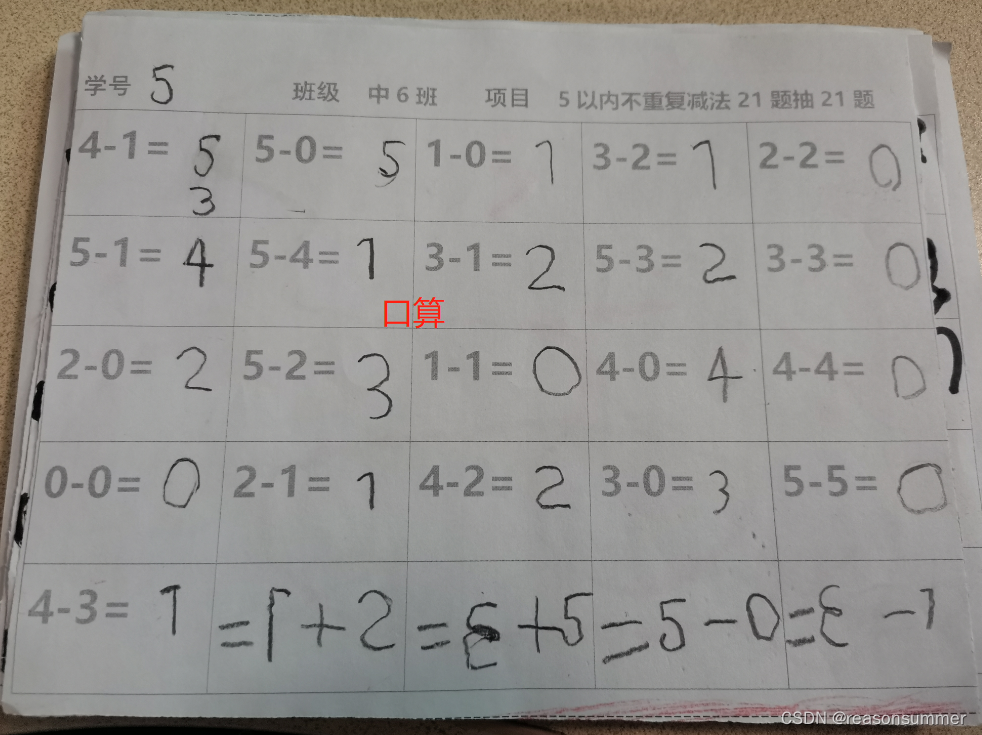 学号 5 班级 中6班 项目 5以内不重复减法21题抽21题
4-1= 5 5-0= 5 1-0= 1 3-2= 1 2-2= 0
3
5-1= 4 5-4= 1 3-1= 2 5-3= 2 3-3= 0
口算
2-0= 2 5-2= 3 1-1= 0 4-0= 4 4-4= 0
0-0= 0 2-1= 1 4-2= 2 3-0= 3 5-5= 0
4-3= 1 =1+2 = +5 =5-0 =3-1
CSDN @reasonsummer